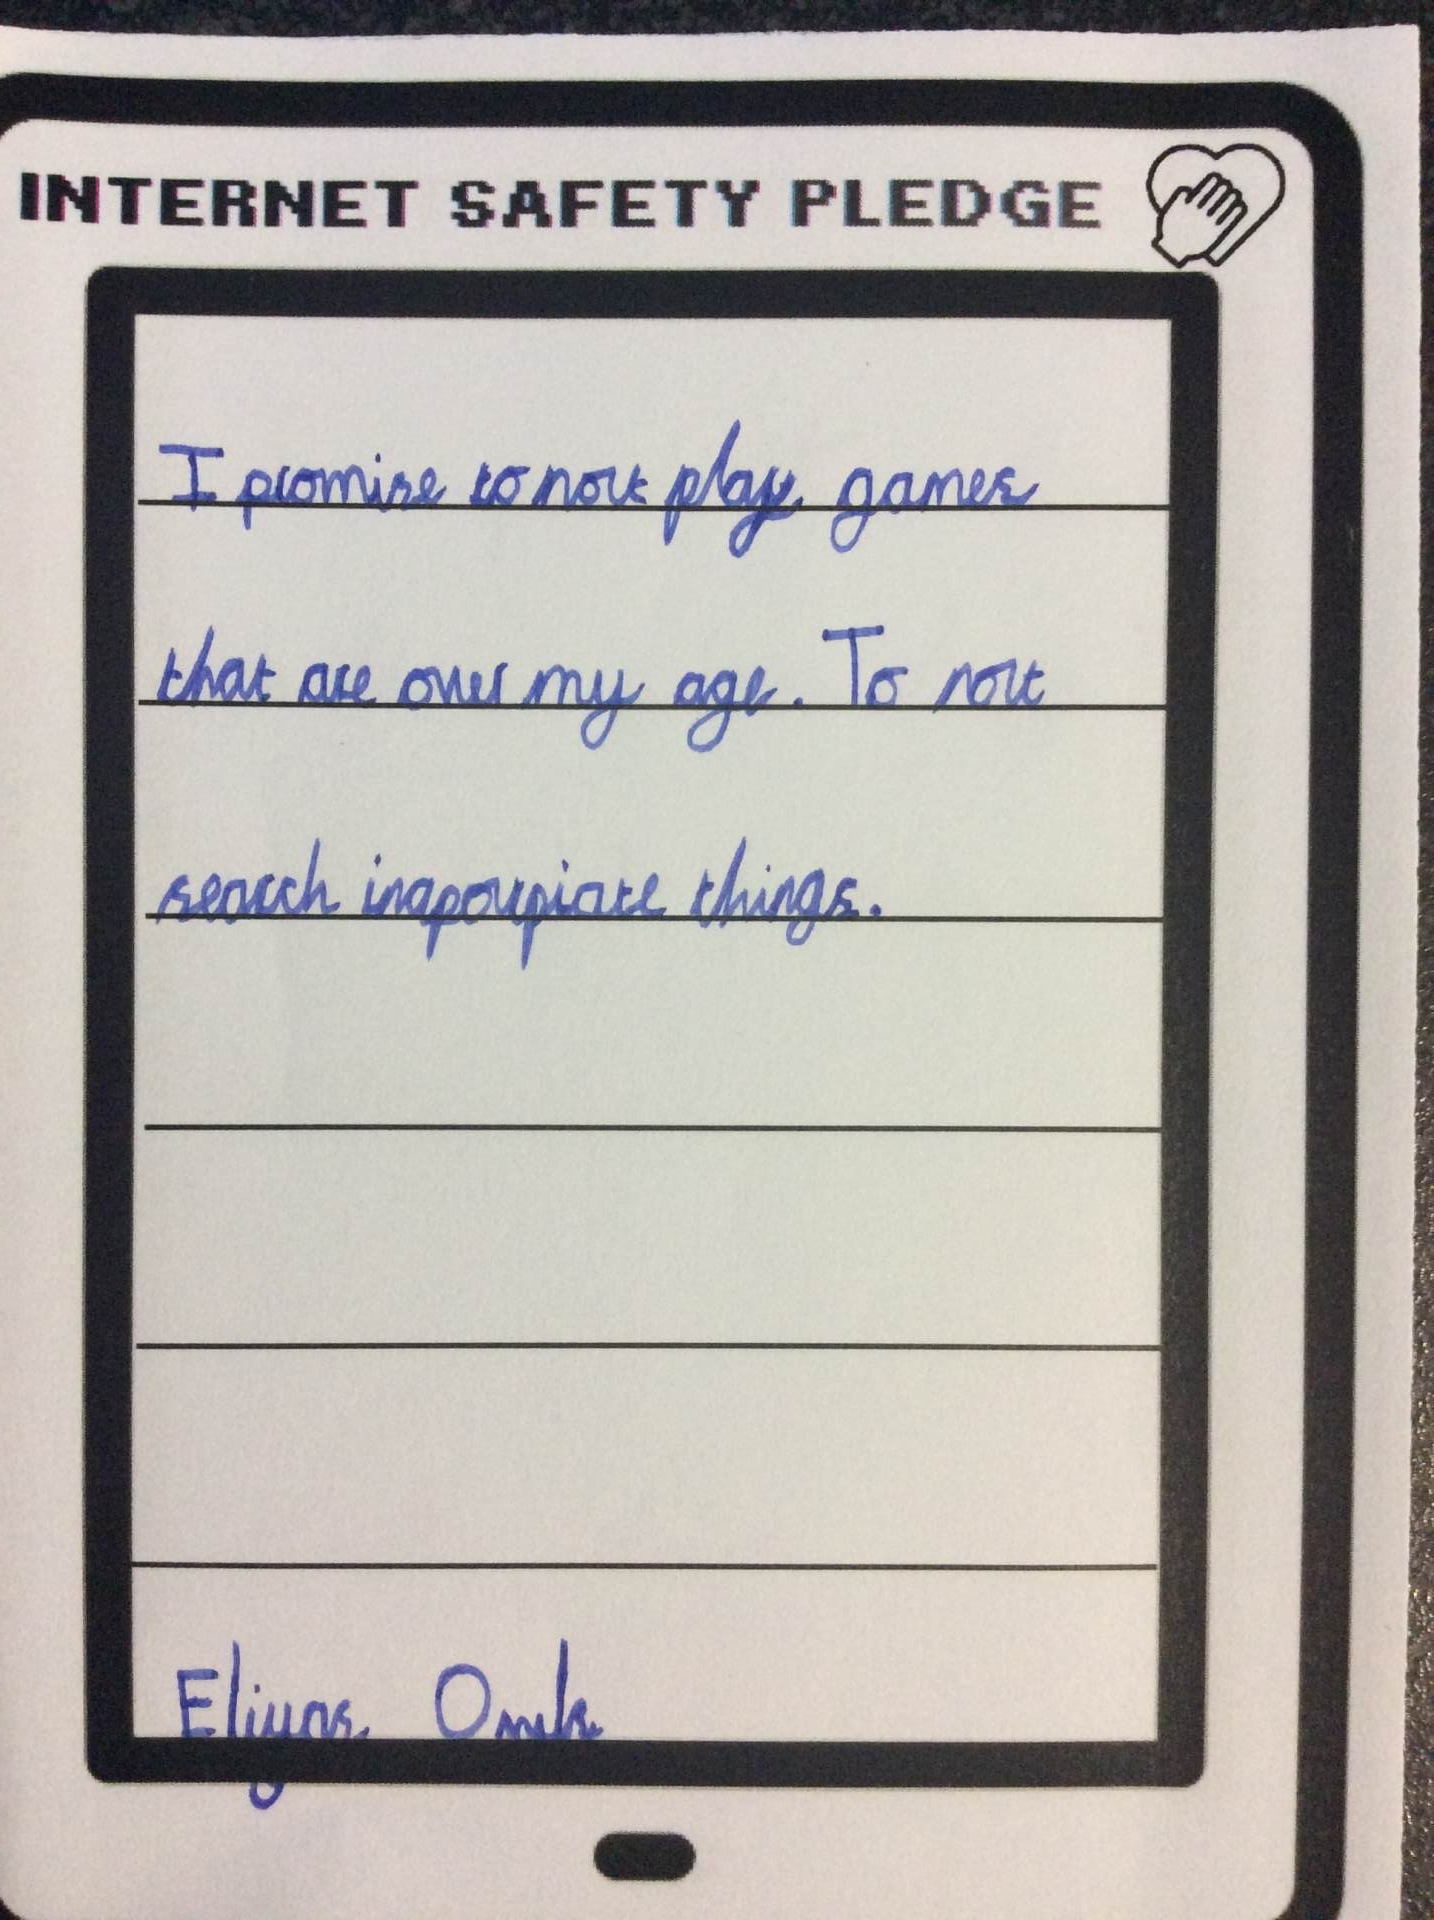 INTERNET SAFETY PLEDGE
I promise to not play games
that are over my age. To not
search inaporpiate things.
Eliyas